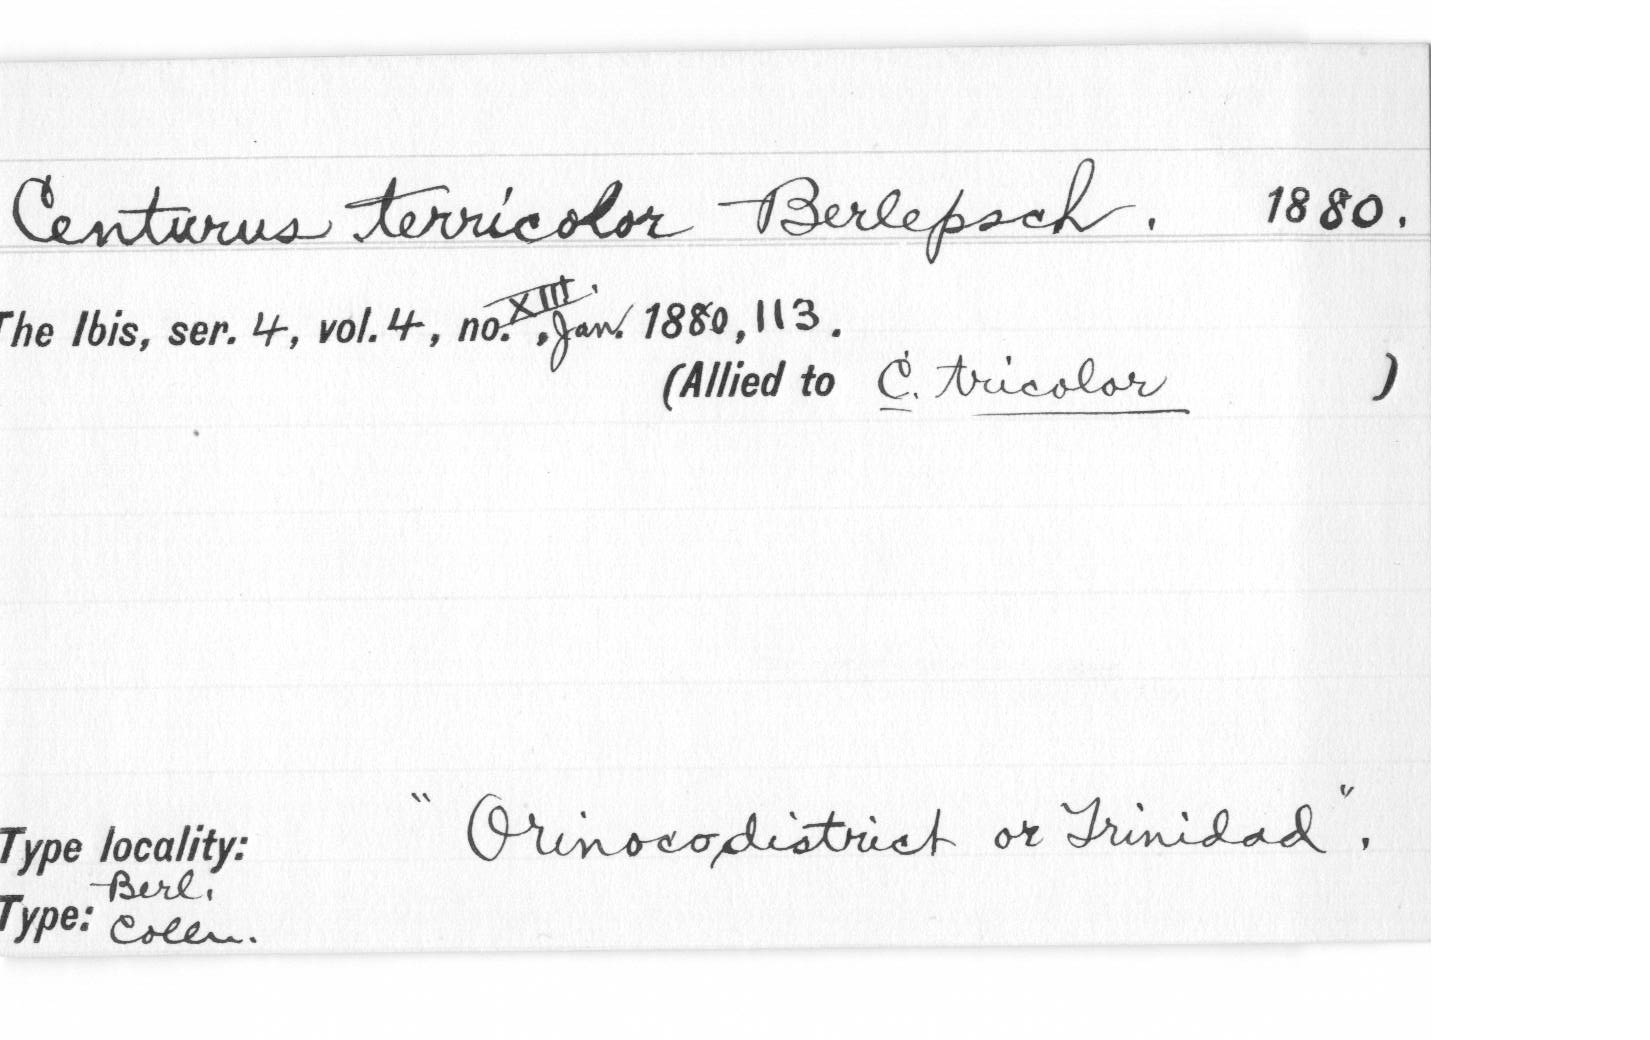 Centurus terricolor Berlepsch. 1880.
The Ibis, ser. 4, vol. 4, no. XIII, Jan. 1880, 113.
(Allied to C. tricolor )
Type locality: "Orinoco district or Trinidad".
Type: Berl. Colln.